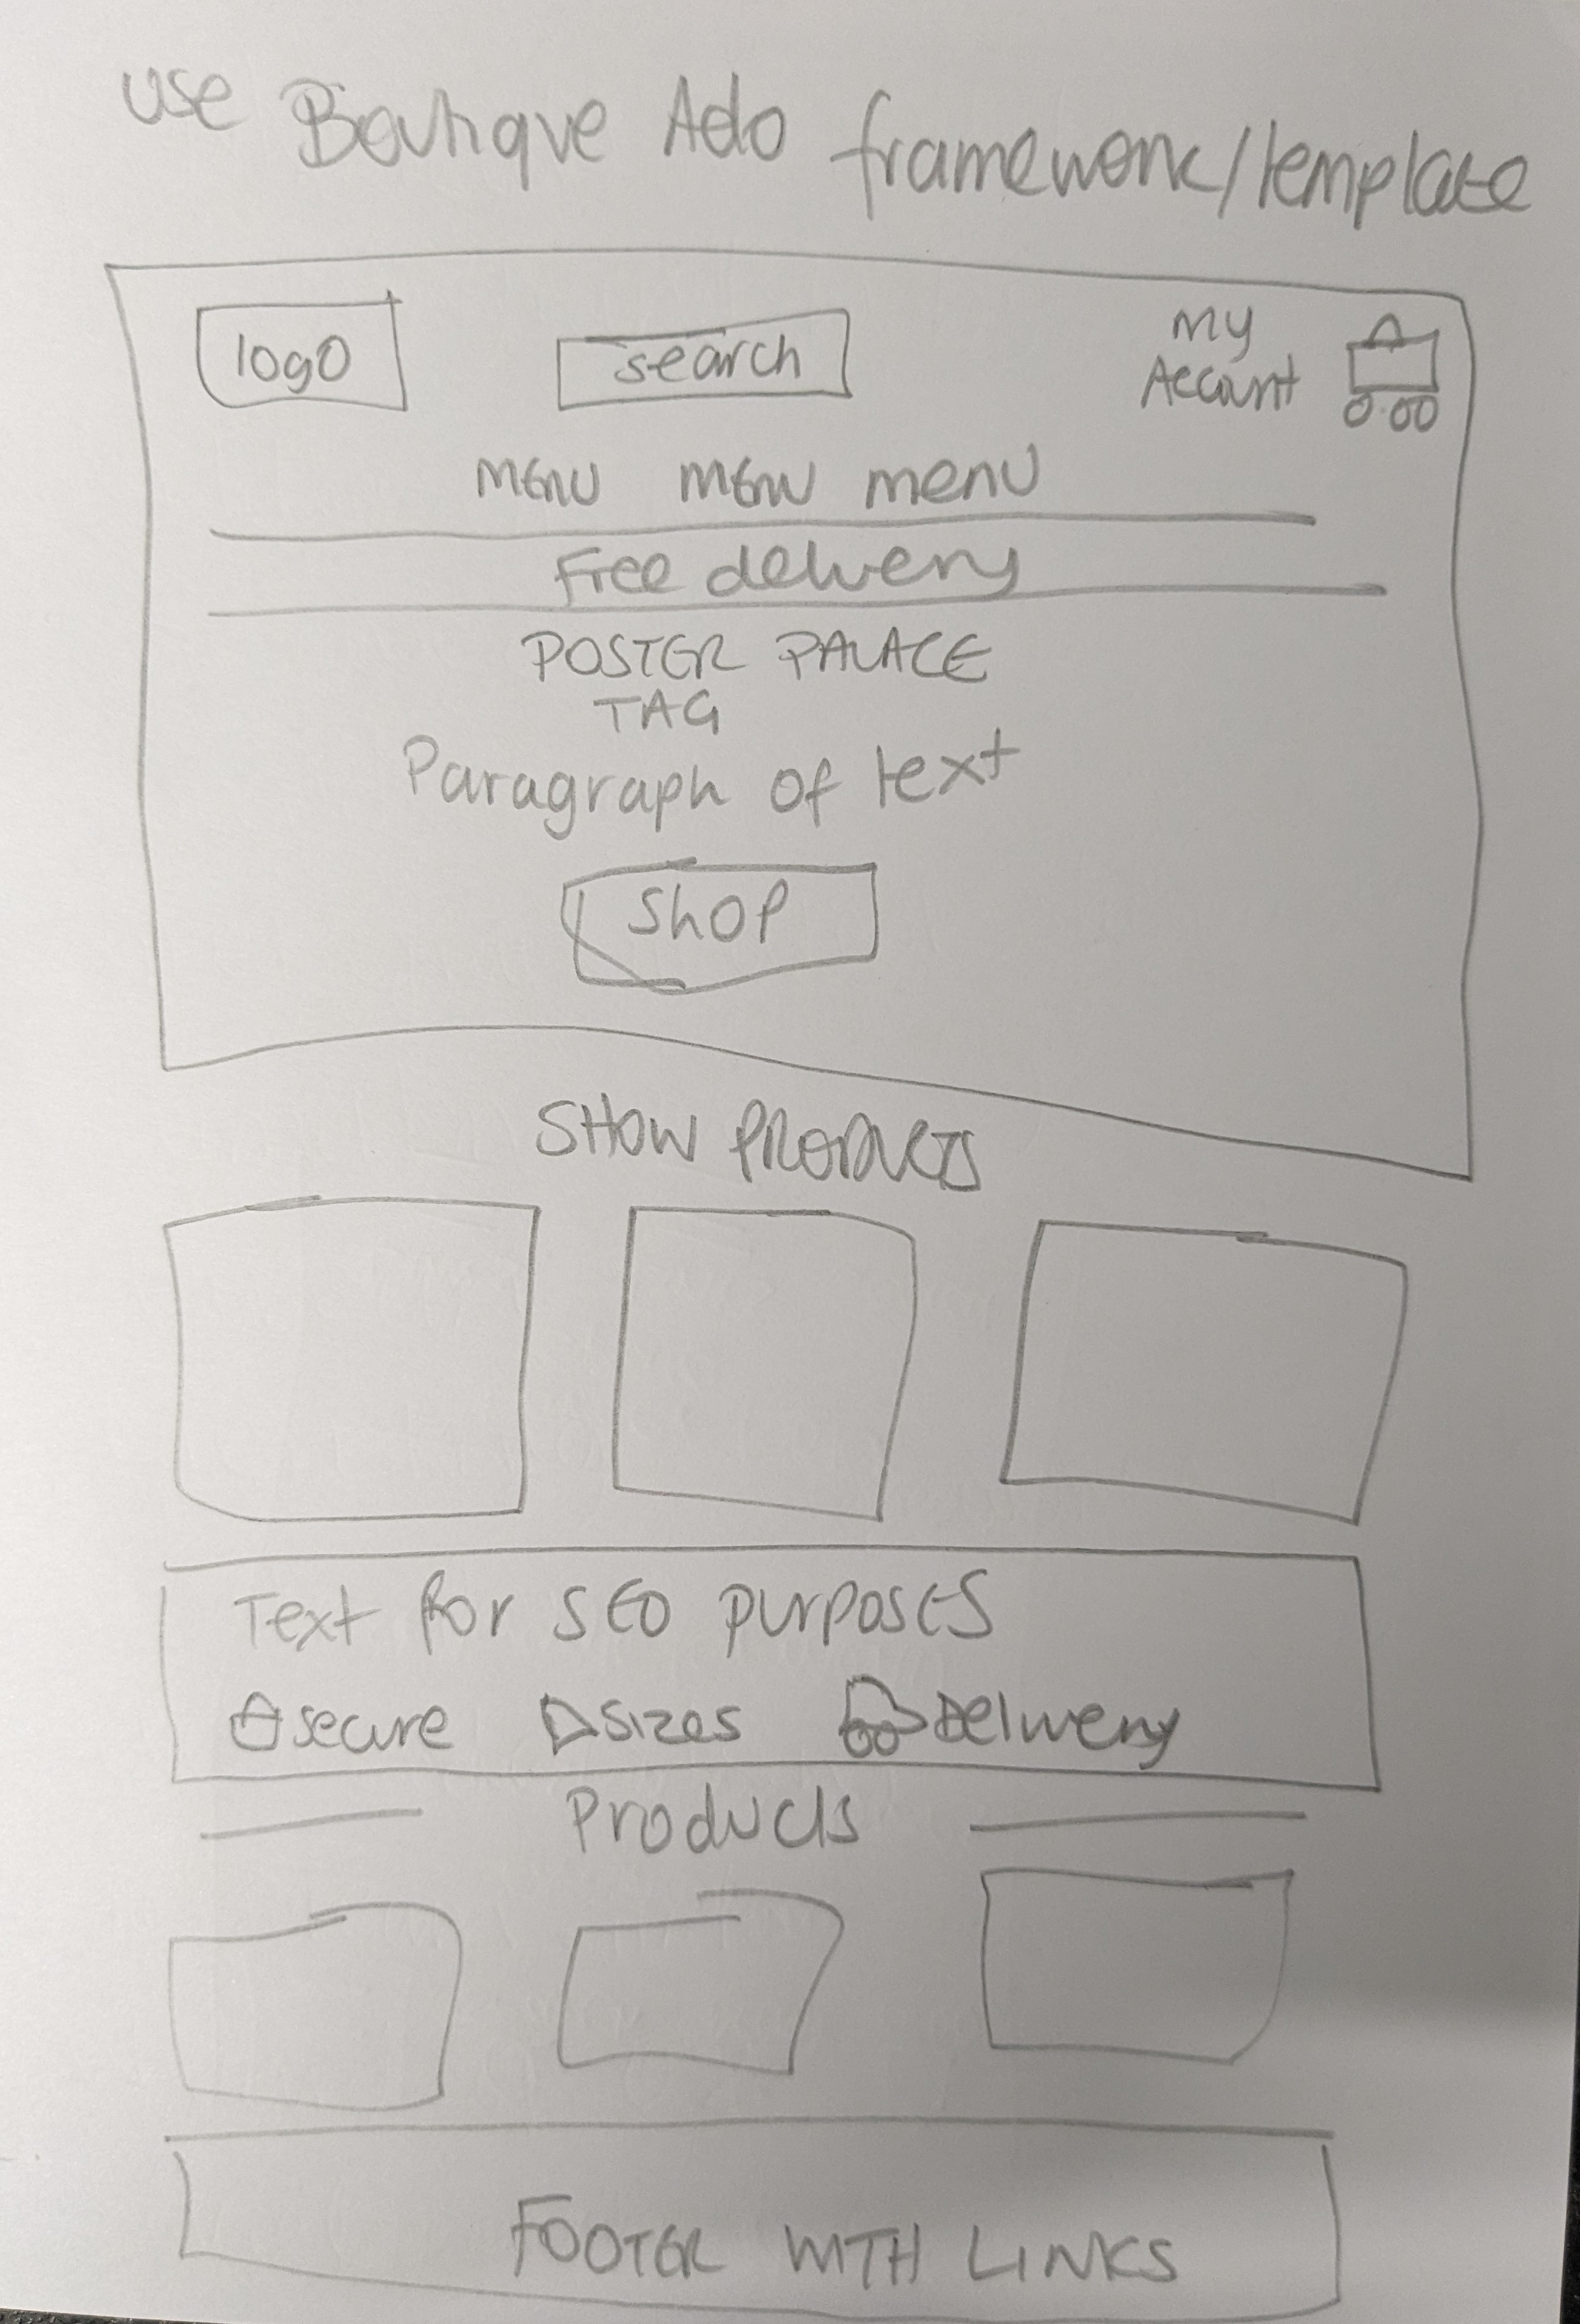 use Boutique Ado framework/template
logo search My Account
0.00
MENU MENU menu
Free delivery
POSTER PALACE
TAG
Paragraph of text
Shop
SHOW PRODUCTS
Text for SEO purposes
secure sizes Delivery
Products
FOOTER WITH LINKS